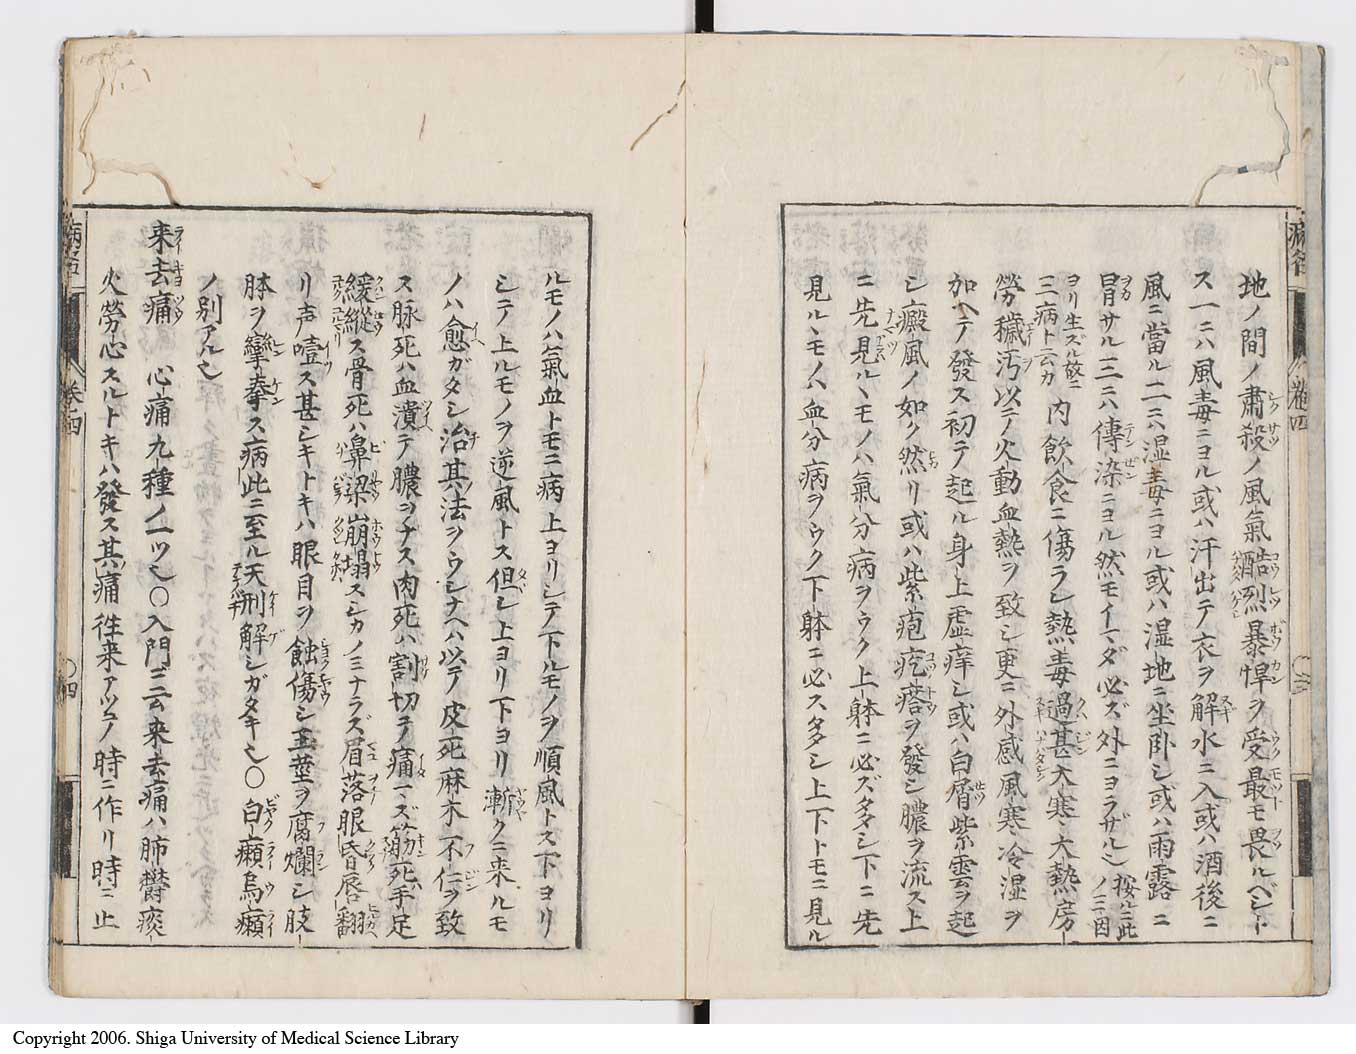 地ノ間ノ肅殺ノ風氣酷烈暴悍ヲ受最モ畏ルベシト
ス一ニハ風毒ニヨル或ハ汗出テ衣ヲ解水ニ入或ハ酒後ニ
風ニ當ル二ニハ湿毒ニヨル或ハ湿地ニ坐卧シ或ハ雨露ニ
冒サル三ニハ傳染ニヨル然モイマダ必ズ外ニヨラザル也按ルニ此ノ三因
ヨリ生ズル故ニ三病ト云カ内飲食ニ傷ラレ熱毒過甚大寒大熱房
勞穢汚以テ火動血熱ヲ致シ更ニ外感風寒冷湿ヲ
加ヘテ發ス初テ起ル身上虚痒シ或ハ白屑紫雲ヲ起
シ癜風ノ如ク然リ或ハ紫疱疙瘩ヲ發シ膿ヲ流ス上
ニ先見ルヽモノハ氣分病ヲウク上躰ニ必ズタタシ下ニ先
見ルヽモノハ血分病ヲウク下躰ニ必スタタシ上下トモニ見ル
ルモノハ氣血トモニ病上ヨリシテ下ルモノヲ順風トス下ヨリ
シテ上ルモノヲ逆風トス但シ上ヨリ下ヨリ漸クニ来ルモ
ノハ愈ガタシ治其法ヲウシナヘハ以テ皮死麻木不仁ヲ致
ス脉死ハ血潰テ膿ヲナス肉死ハ割切テ痛マズ筋死手足
緩縱ス骨死ハ鼻梁崩塌スシカノミナラズ眉落眼昏唇翻
リ声噎ス甚シキトキハ眼目ヲ蝕傷シ玉莖ヲ腐爛シ肢
躰ヲ攣拳ス病此ニ至ル天刑解シガタキ也〇白癩烏癩
ノ別アル也
来去痛 心痛九種ノ一ツ也〇入門ニ云来去痛ハ肺鬱痰
火勞心スルトキハ發ス其痛徃来アツテ時ニ作リ時ニ止
卷四
〇四
卷四
Copyright 2006. Shiga University of Medical Science Library